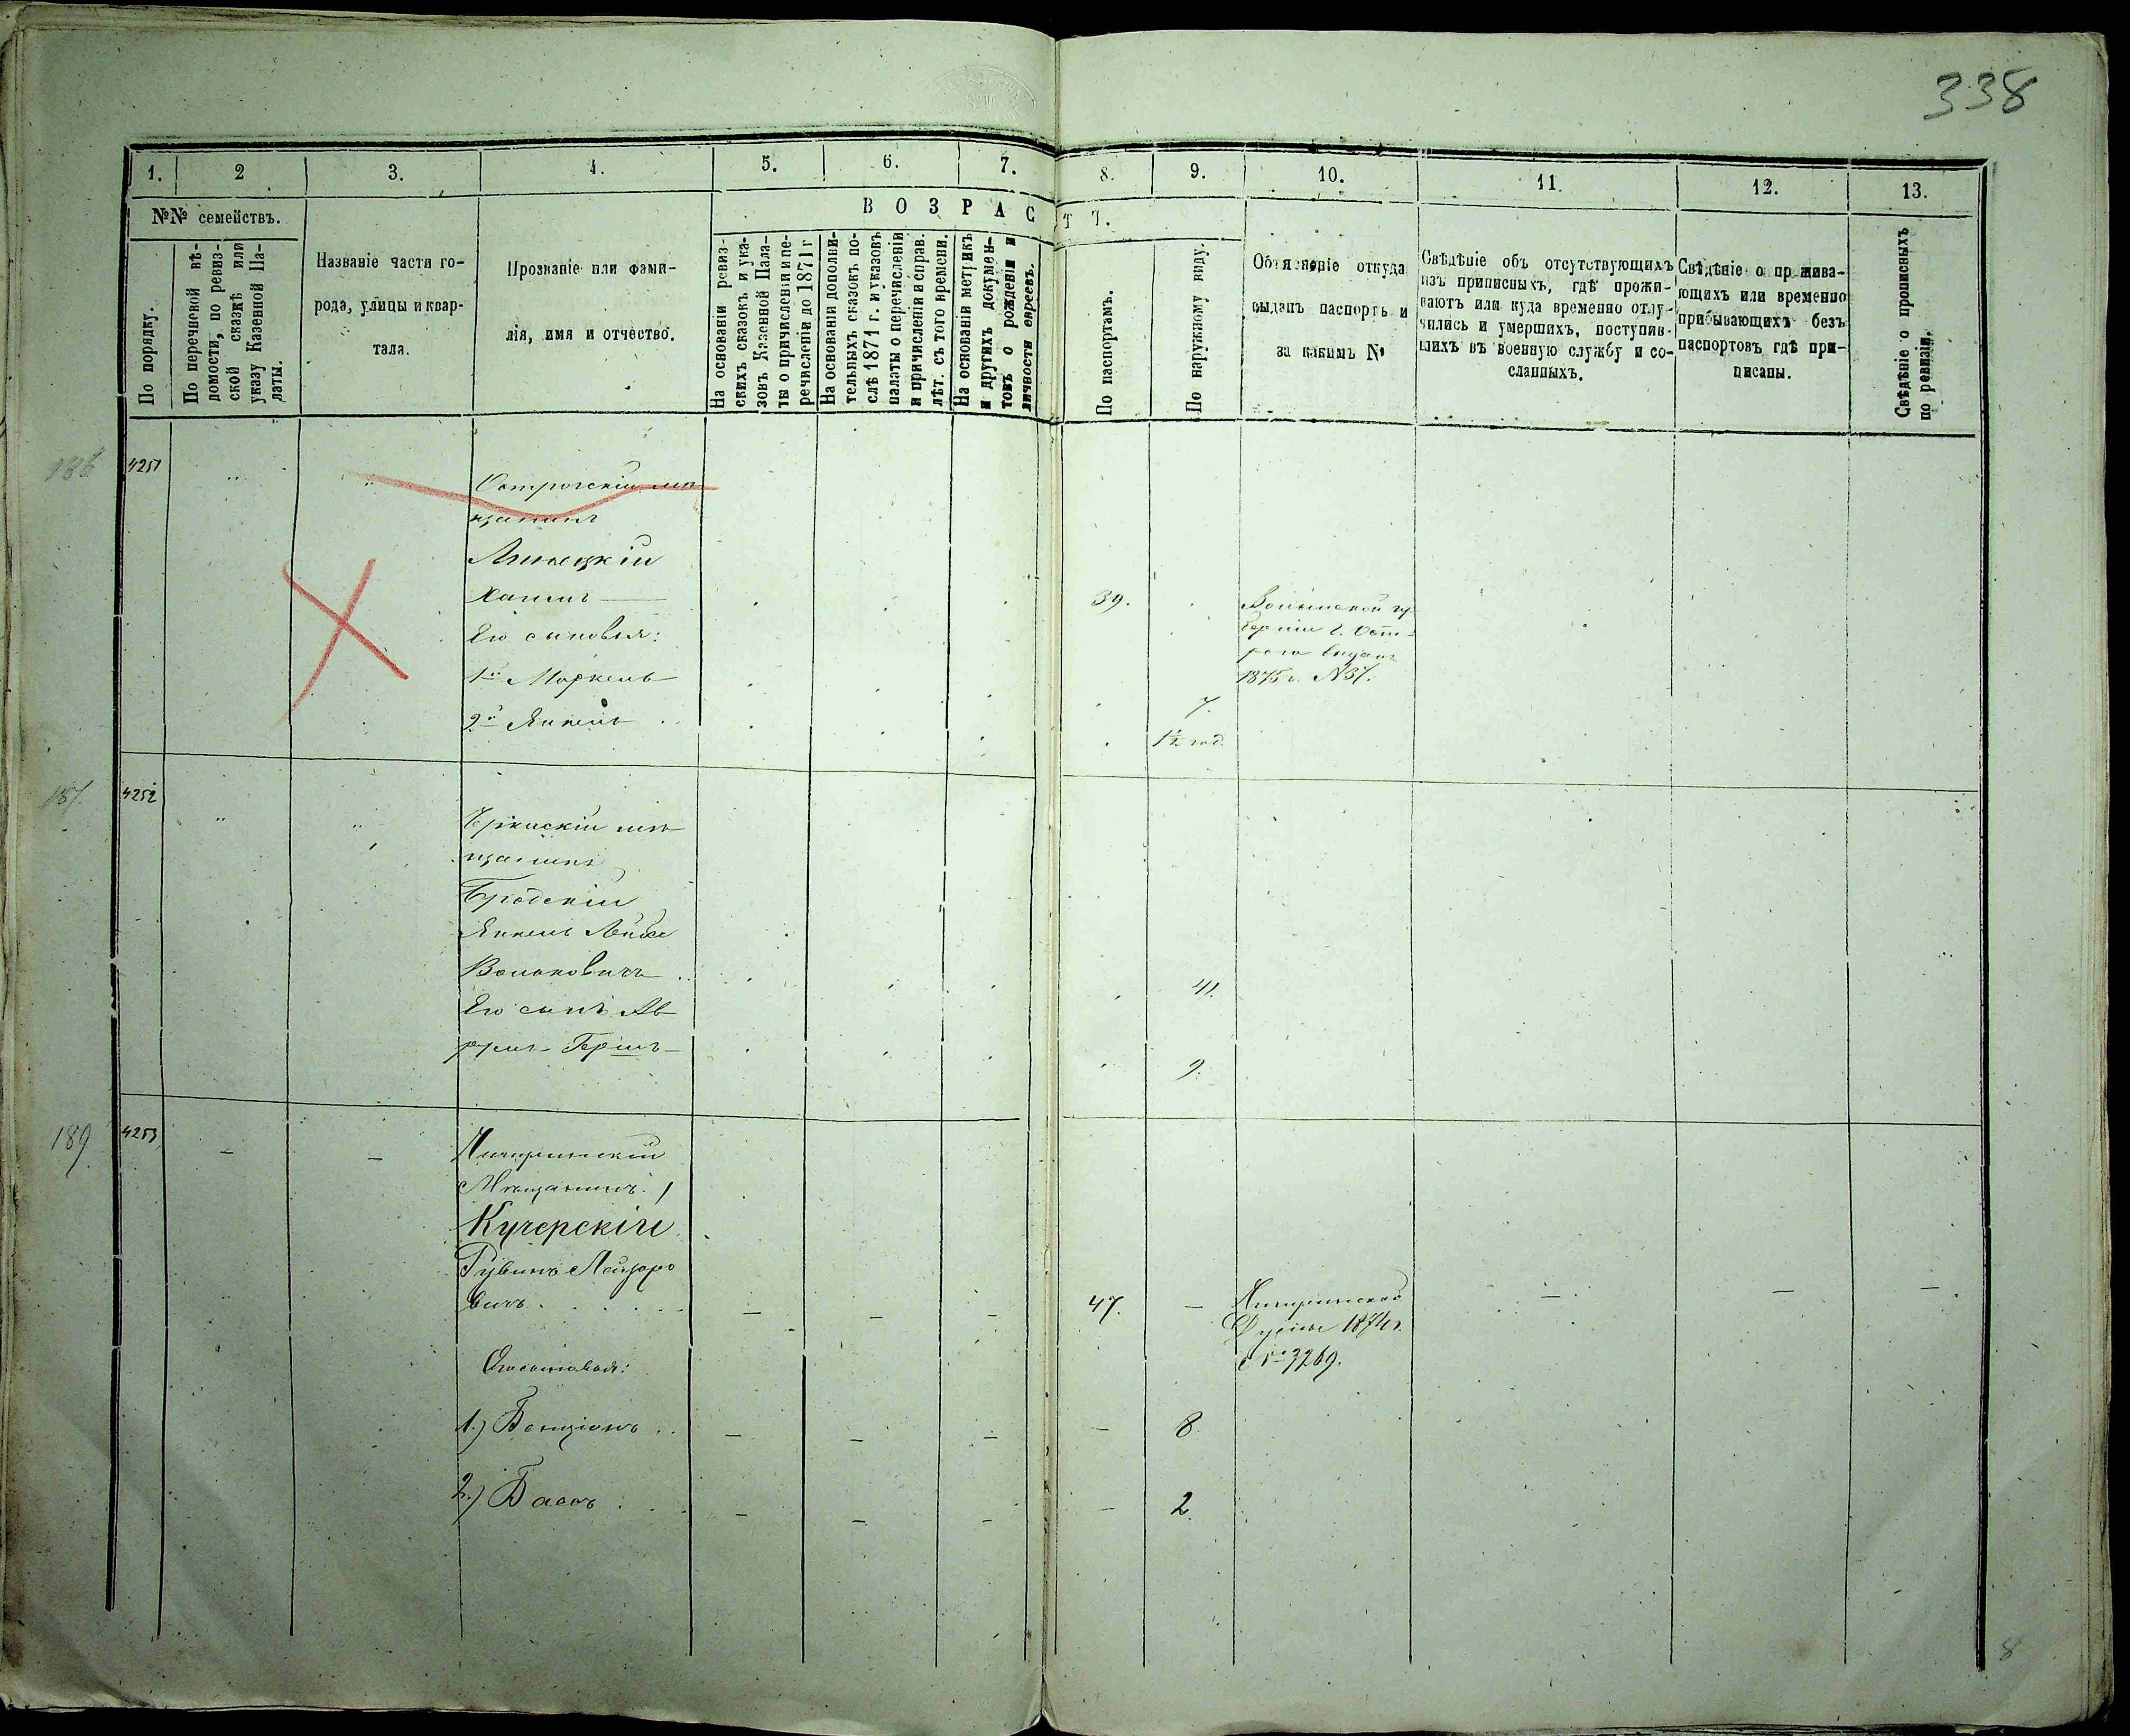 338
1. 2 3. 4. 5. 6. 7. 8. 9. 10. 11. 12. 13.
№№ семействъ.
ВОЗРАСТЪ.
По порядку.
По перечневой вѣ-
домости, по ревиз-
ской сказкѣ или
указу Казенной Па-
латы.
Названіе части го-
рода, улицы и квар-
тала.
Прозваніе или фами-
лія, имя и отчество.
На основаніи ревиз-
скихъ сказокъ и ука-
зовъ Казенной Пала-
ты о причисленіи и пе-
речисленіи до 1871 г
На основаніи дополни-
тельныхъ сказокъ по-
слѣ 1871 г. и указовъ
палаты о перечисленіи
и причисленіи и справ.
лѣт. съ того времени.
На основаніи метрикъ
и другихъ докумен-
товъ о рожденіи и
личности евреевъ.
По паспортамъ.
По наружному виду.
Объясненіе откуда
выданъ паспортъ и
за какимъ №
Свѣдѣніе объ отсутствующихъ
изъ приписныхъ, гдѣ прожи-
ваютъ или куда временно отлу-
чились и умершихъ, поступив-
шихъ въ военную службу и со-
сланныхъ.
Свѣдѣніе о прожива-
ющихъ или временно
прибывающихъ безъ
паспортовъ гдѣ при-
писаны.
Свѣдѣніе о прописныхъ
по ревизіи.
186 4251
Острогскій мѣ
щанинъ
Липецкій
Хаимъ 39.
Его сыновья:
1й Моркель 7.
2й Янкель 1½ год.
Волынской гу
берніи г. Ост-
рога выданъ
1875 г. №37.
187. 4252
мѣ
щанинъ
Бродскій
Янкель Лейба
Вольковичъ 41.
Его сынъ Ав
румъ-Гершъ 9.
189 4253
Чигиринскій
Мѣщанинъ
Кучерскій
Рувинъ Лейзеро
вичъ 47.
Чигиринской
Думы 1874 г.
№ 3269.
Его сыновья:
1.) Бенціонъ 8
2.) 2
8